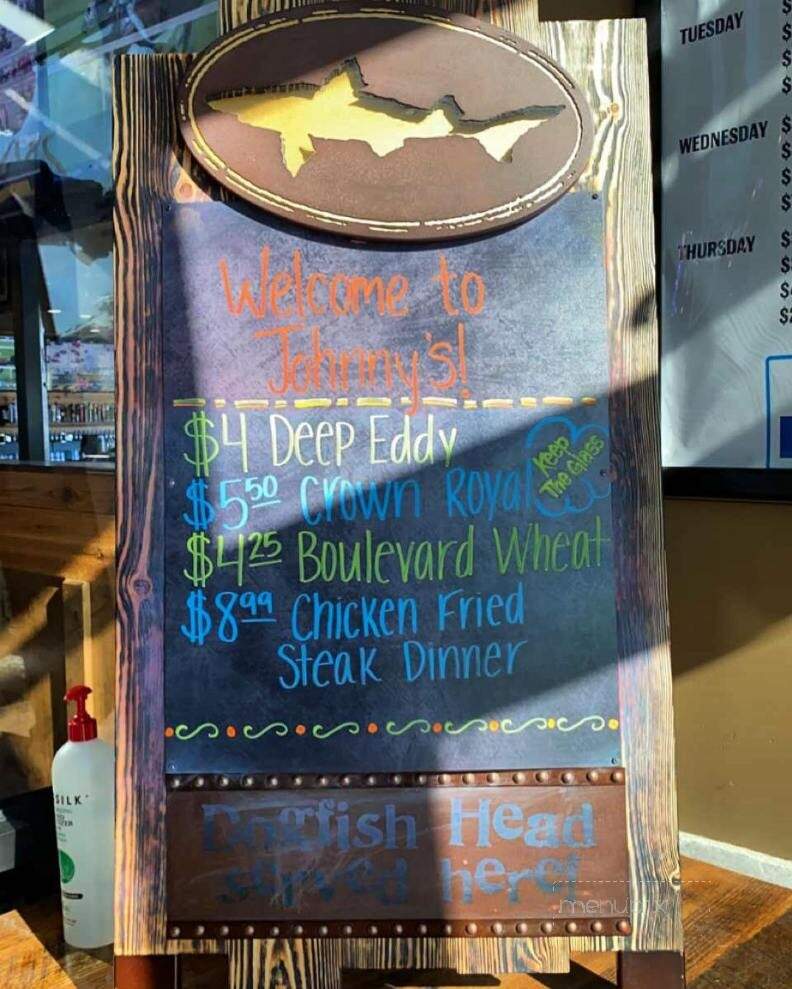 Welcome to
Johnny's!
$4 Deep Eddy
Keep
The Glass
$5.50 Crown Royal
$4.25 Boulevard Wheat
$8.99 Chicken Fried
Steak Dinner
Dogfish Head
served here!
TUESDAY
WEDNESDAY
THURSDAY
SILK
menupix